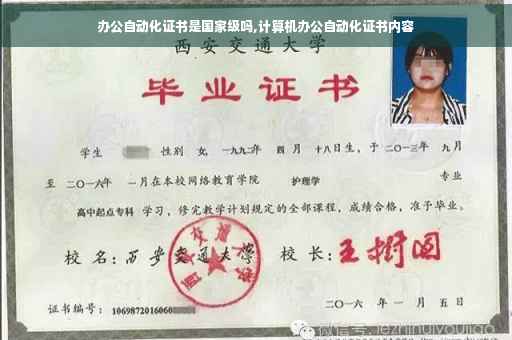 办公自动化证书是国家级吗,计算机办公自动化证书内容
西安交通大学
毕业证书
学生 性别 女, 一九九二年 四月 十八日生, 于二〇一三年 九月
至 二〇一六年 一月在本校网络教育学院 护理学 专业
高中起点专科 学习, 修完教学计划规定的全部课程, 成绩合格, 准予毕业。
校名: 西安交通大学 校长: 王树国
西安交通大学
证书编号: 1069872016060 二〇一六年一月五日
微信号: jezhinuiyoujiao